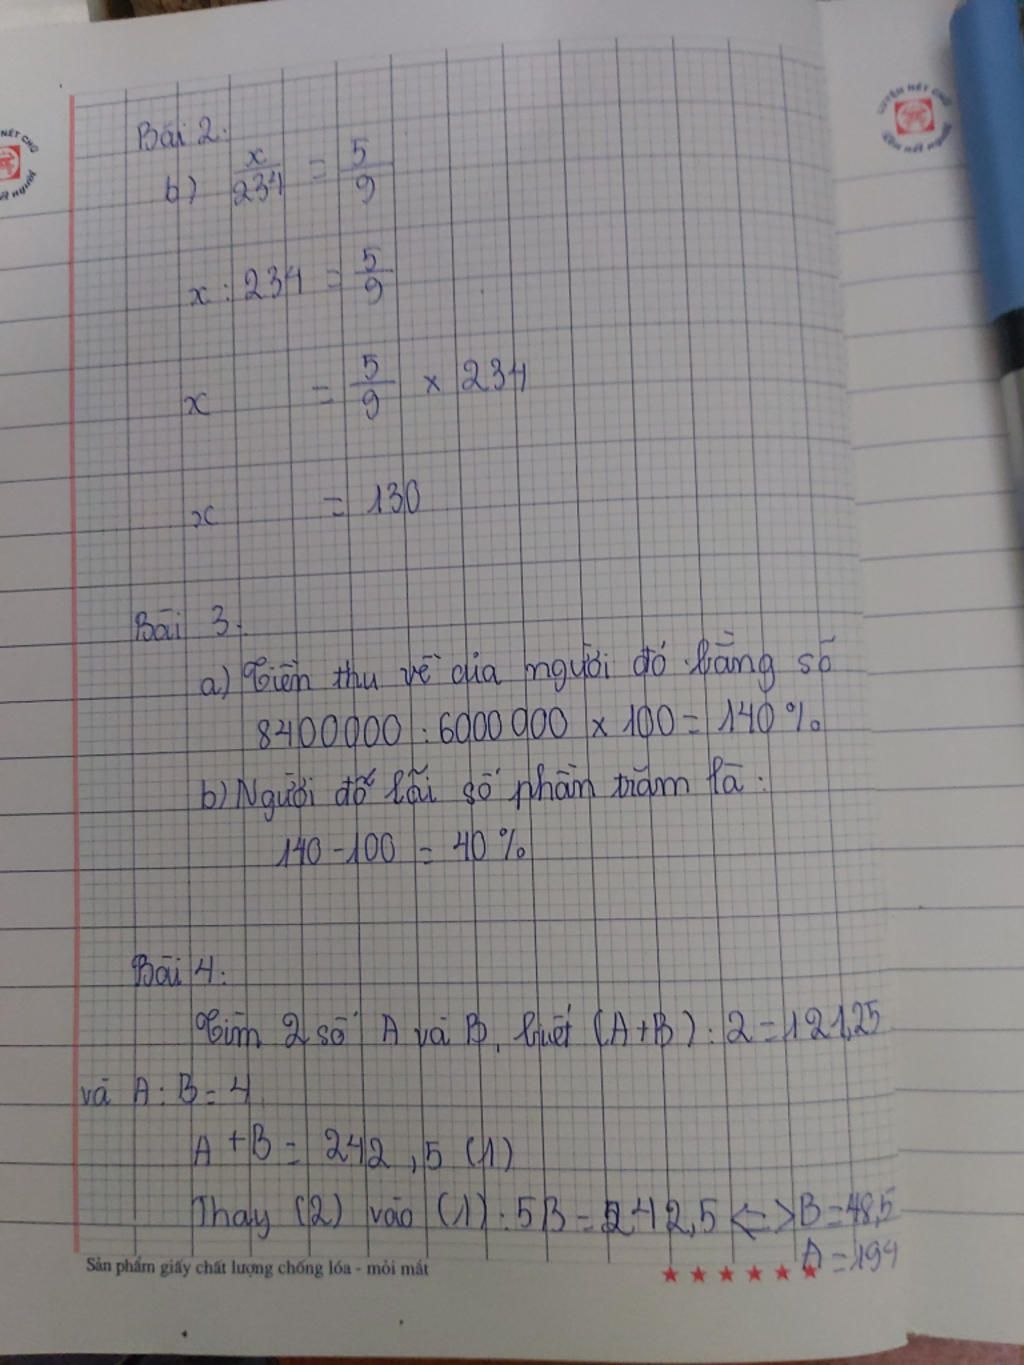 Bài 2:
b) x/234 = 5/9
x : 234 = 5/9
x = 5/9 × 234
x = 130
Bài 3.
a) Tiền thu về của người đó bằng số
8400000 : 6000000 × 100 = 140%
b) Người đó lãi số phần trăm là :
140 - 100 = 40%
Bài 4:
Tìm 2 số A và B, biết (A+B) : 2 = 121,25
và A : B = 4
A + B = 242,5 (1)
Thay (2) vào (1) : 5B = 242,5 <=> B = 48,5
A = 194
Sản phẩm giấy chất lượng chống lóa - mỏi mắt
LUYỆN NÉT CHỮ
RÈN NẾT NGƯỜI